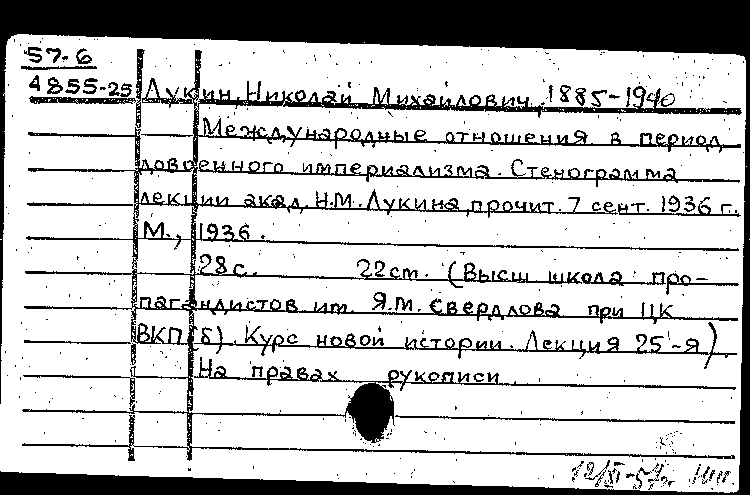 57-6
4855-25 Лукин, Николай Михайлович, 1885-1940
Международные отношения в период
довоенного империализма. Стенограмма
лекции акад. Н.М. Лукина, прочит. 7 сент. 1936 г.
М., 1936.
28 с. 22 см. (Высш школа про-
пагандистов им. Я.М. Свердлова при ЦК
ВКП(б). Курс новой истории. Лекция 25-я).
На правах рукописи.